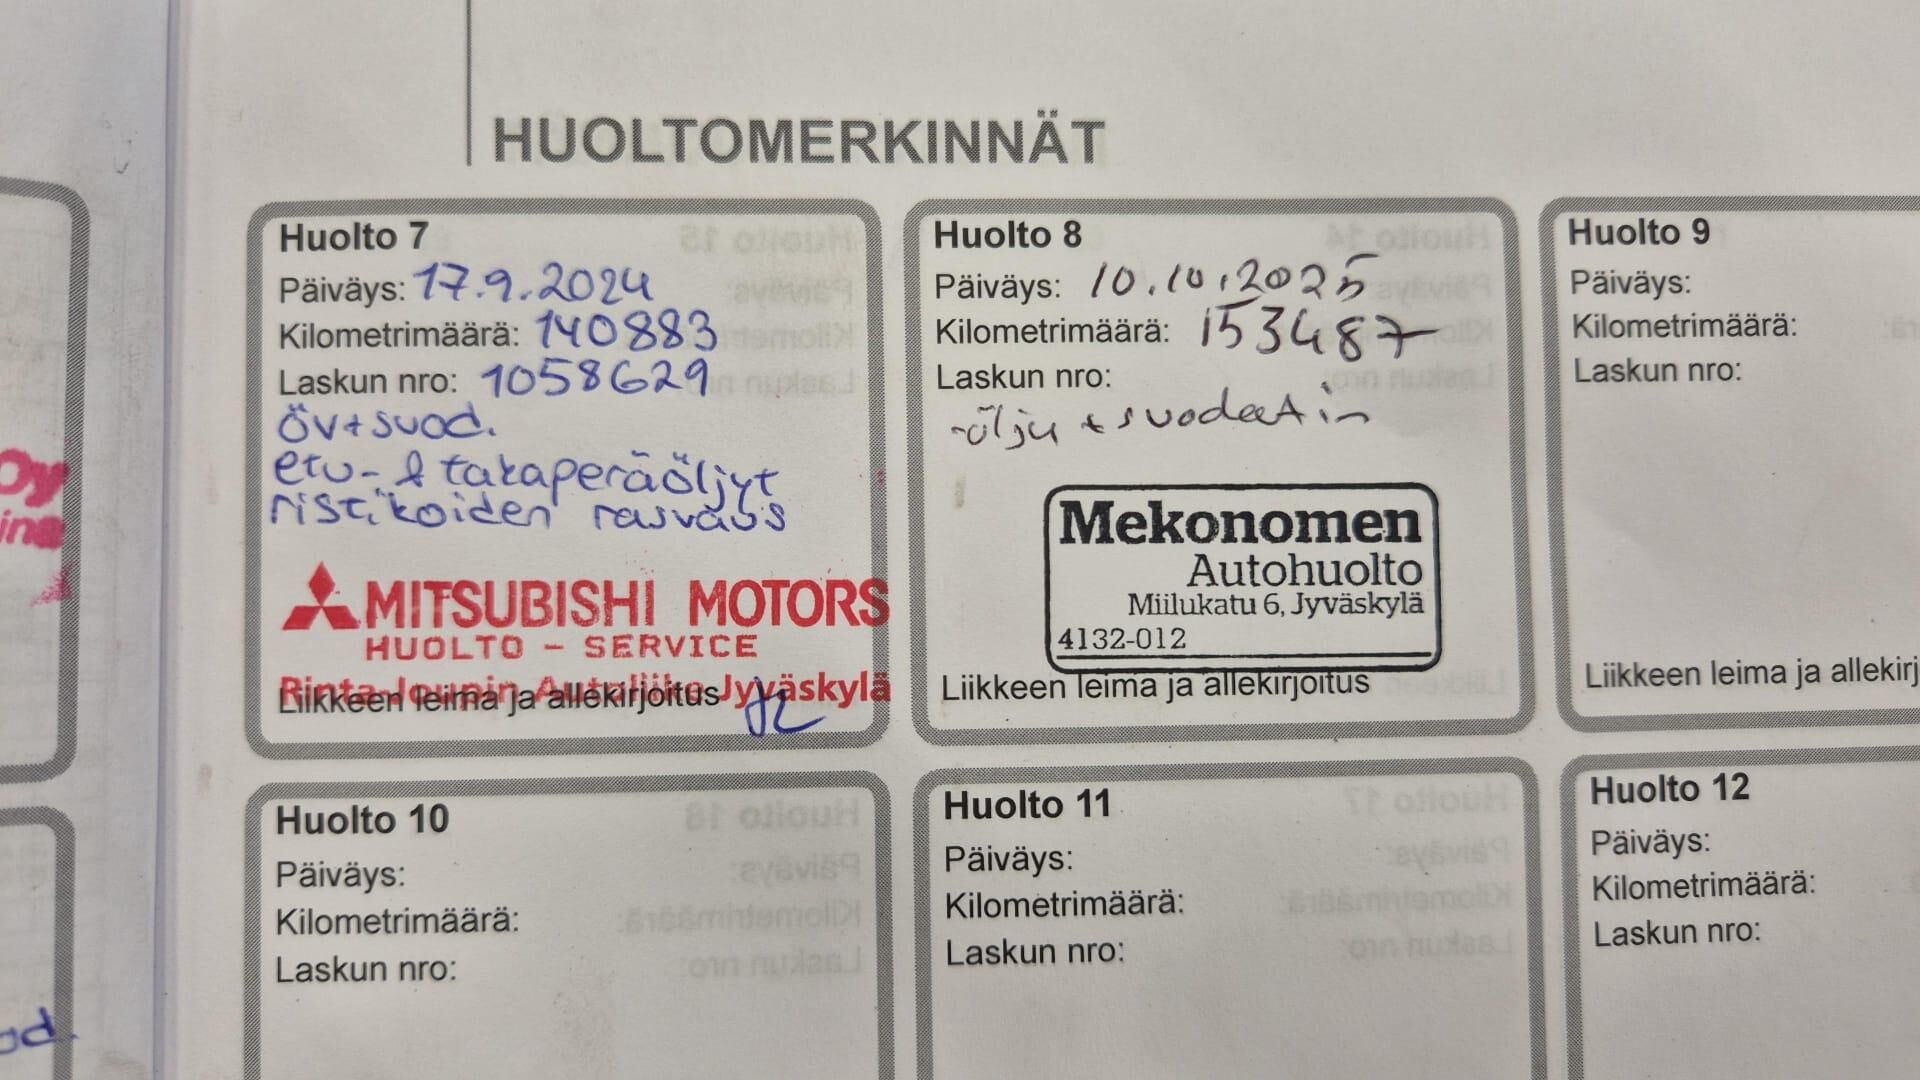 HUOLTOMERKINNÄT
Huolto 7
Päiväys: 17.9.2024
Kilometrimäärä: 140883
Laskun nro: 1058629
öv+suod.
etu- & takaperäöljyt
ristikoiden rasvaus
MITSUBISHI MOTORS
HUOLTO - SERVICE
Rinta-Joupin Autoliike Jyväskylä
Liikkeen leima ja allekirjoitus
Huolto 8
Päiväys: 10.10.2025
Kilometrimäärä: 153487
Laskun nro:
-öljy + suodatin
Mekonomen
Autohuolto
Miilukatu 6, Jyväskylä
4132-012
Liikkeen leima ja allekirjoitus
Huolto 9
Päiväys:
Kilometrimäärä:
Laskun nro:
Liikkeen leima ja allekirj
Oy
Huolto 10
Päiväys:
Kilometrimäärä:
Laskun nro:
Huolto 11
Päiväys:
Kilometrimäärä:
Laskun nro:
Huolto 12
Päiväys:
Kilometrimäärä:
Laskun nro: